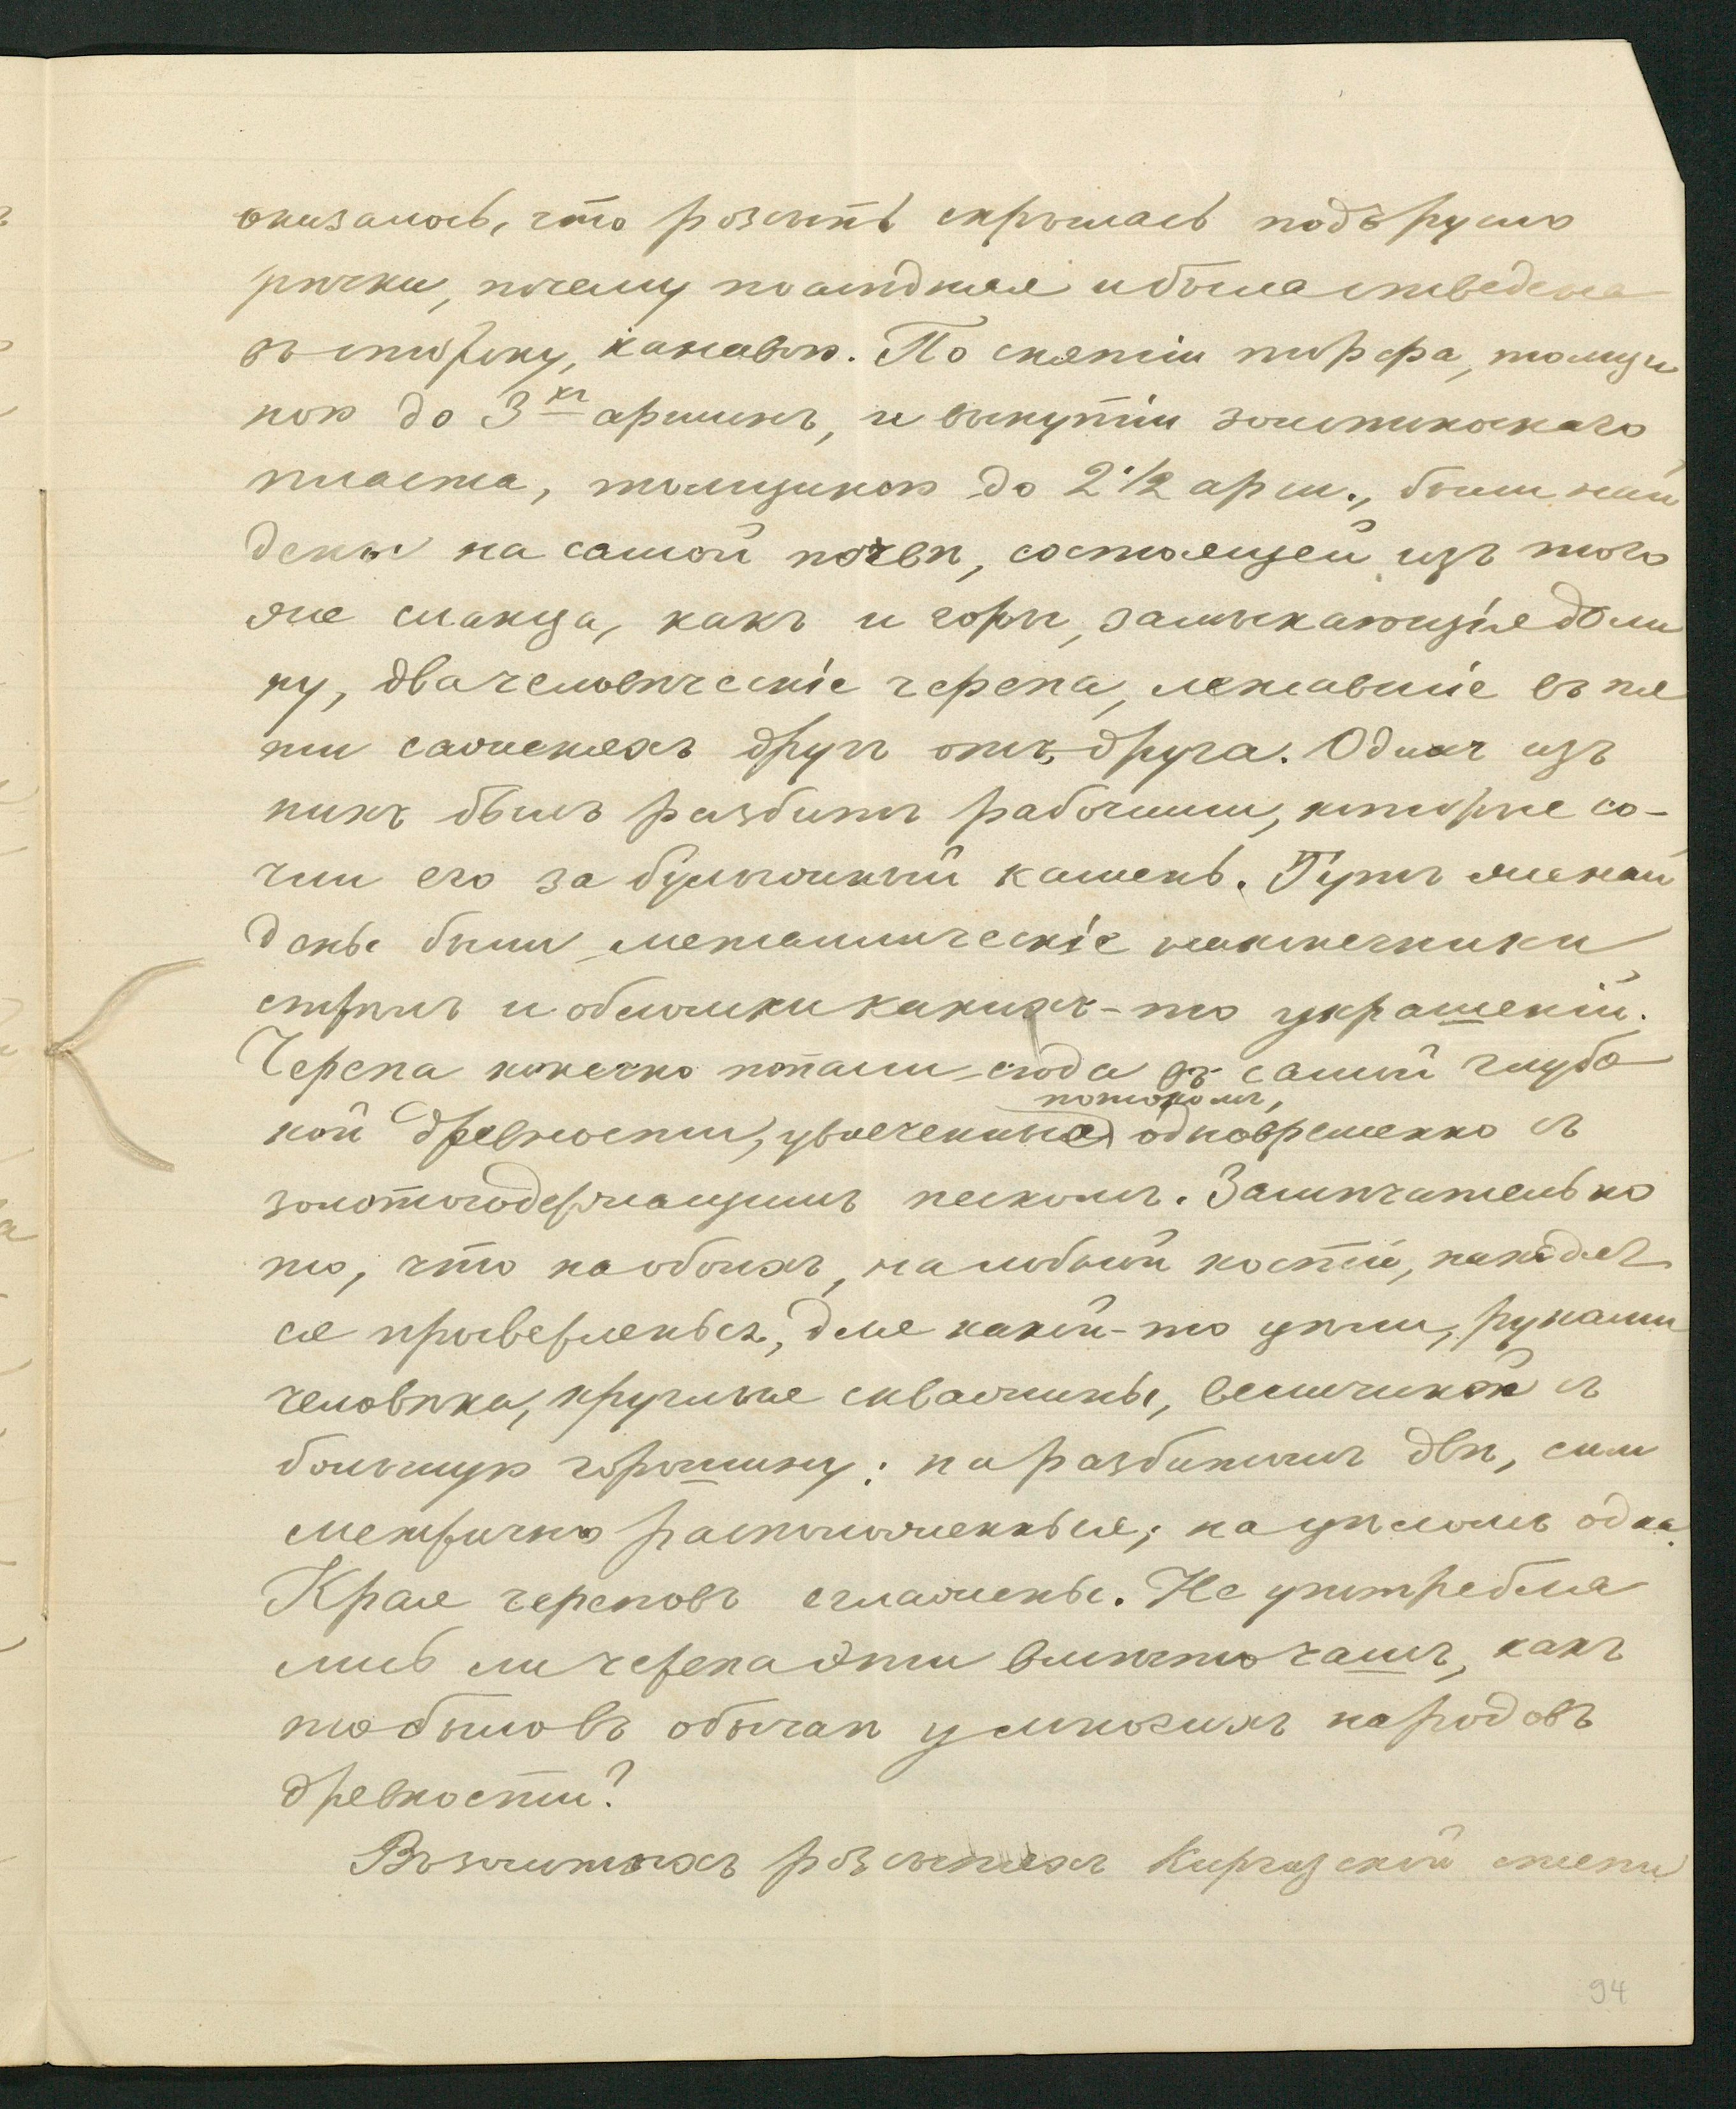 оказалось, что розсыпь скрылась подъ русло
рѣчки, почему послѣдняя и была отведена
въ сторону, канавою. По снятіи торфа, толщи
ною до 3хъ аршинъ, и вынутіи золотиноснаго
пласта, толщиною до 2 1/2 арш., были най
дены на самой почвѣ, состоящей изъ того
же сланца, какъ и горы, замыкающія доли
ну, два человѣческіе черепа, лежавшіе въ пя
ти саженяхъ другъ отъ друга. Одинъ изъ
нихъ былъ разбитъ рабочими, которые со-
чли его за булыжный камень. Тутъ же най
дены были металлическіе наконечники
стрѣлъ и обломки какихъ-то украшеній.
Черепа конечно попали сюда въ самой глубо
потокомъ,
кой древности, увлеченные одновременно съ
золотосодержащимъ пескомъ. Замѣчательно
то, что на обоихъ, на лобной кости, находят
ся просверленныя, для какой-то цѣли, руками
человѣка, круглыя скважины, величиной съ
большую горошину: на разбитомъ двѣ, сим
метрично расположенныя; на цѣломъ одна.
Края череповъ сглажены. Не употребля
лись ли черепа эти вмѣсто чашъ, какъ
то было въ обычаѣ у многихъ народовъ
древности?
Въ золотыхъ розсыпяхъ Киргизской степи
94